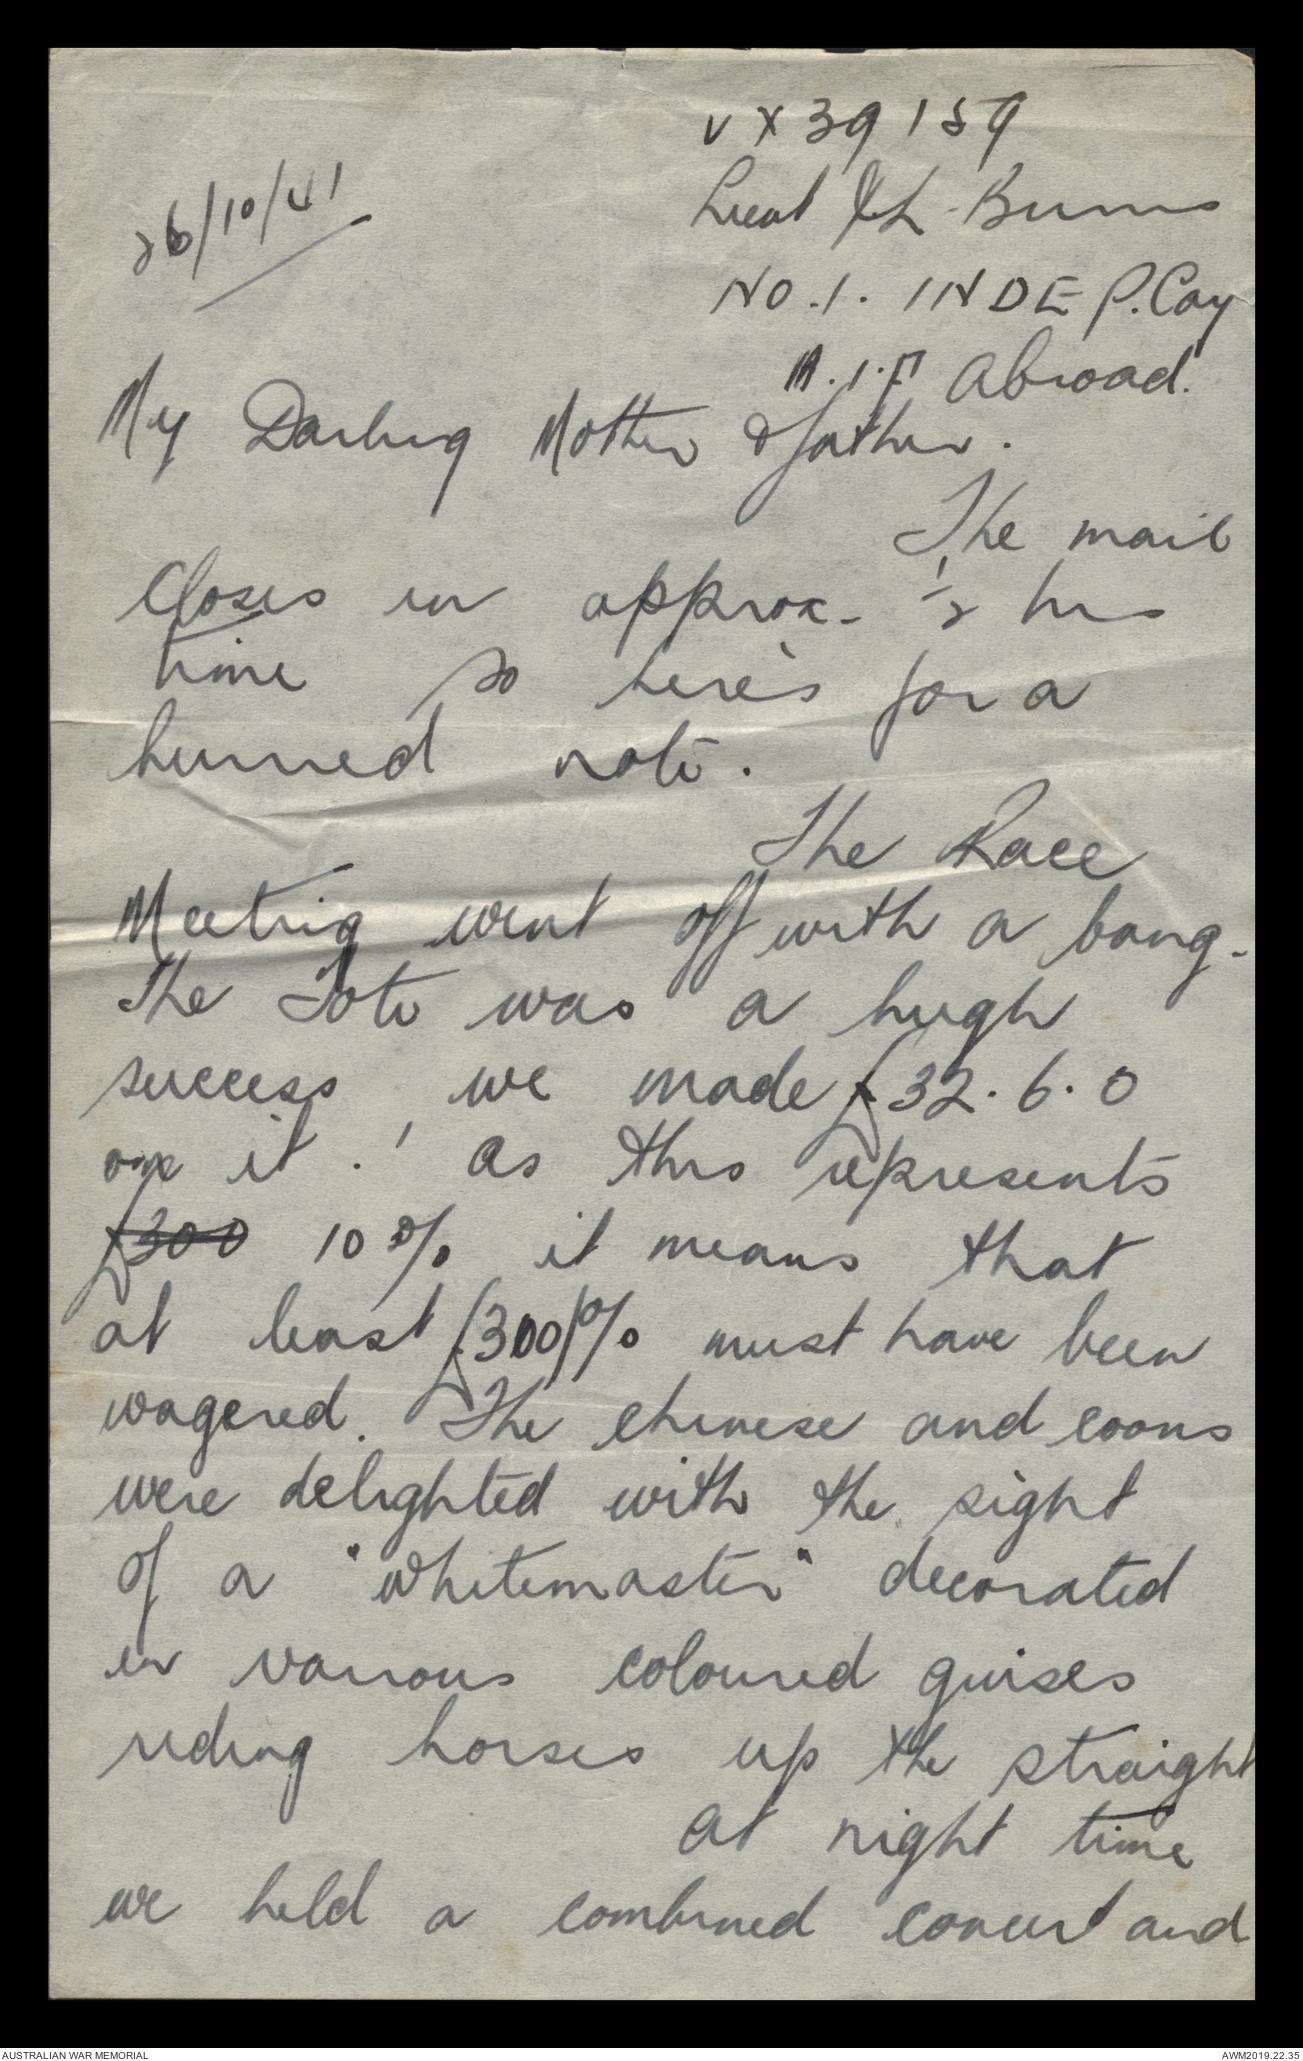 VX39159
26/10/41
Lieut J L Burns
NO.1. INDEP. Coy
A.I.F Abroad.
My Darling Mother & father.
The mail
closes in approx - ½ hrs
time so here's for a
hurried note.
The Race
Meeting went off with a bang -
The Tote was a hugh
success, we made £32.6.0
on it.! As this represents
£300 10% it means that
at least £300 % must have been
wagered. The chinese and coons
were delighted with the sight
of a "whitemaster" decorated
in various coloured guises
riding horses up the straight
At night time
we held a combined concert and
AUSTRALIAN WAR MEMORIAL
AWM2019.22.35